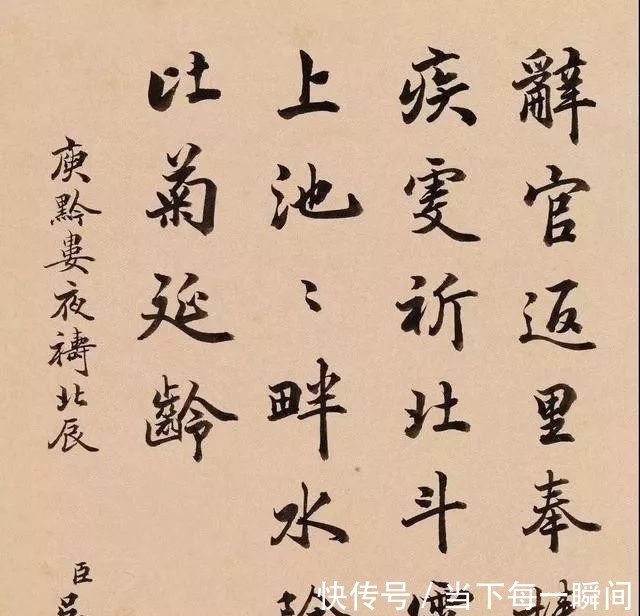 辭官返里奉
疾虔祈北斗
上池〻畔水
比菊延齡
庾黔婁夜禱北辰
臣
快传号/当下每一瞬间